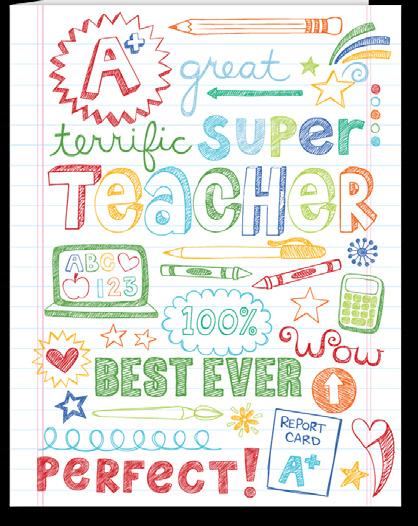 A+
great
terrific super
TEaCHER
ABC
123
100%
Wow
BEST EVER
REPORT
CARD
A+
PERFECT!